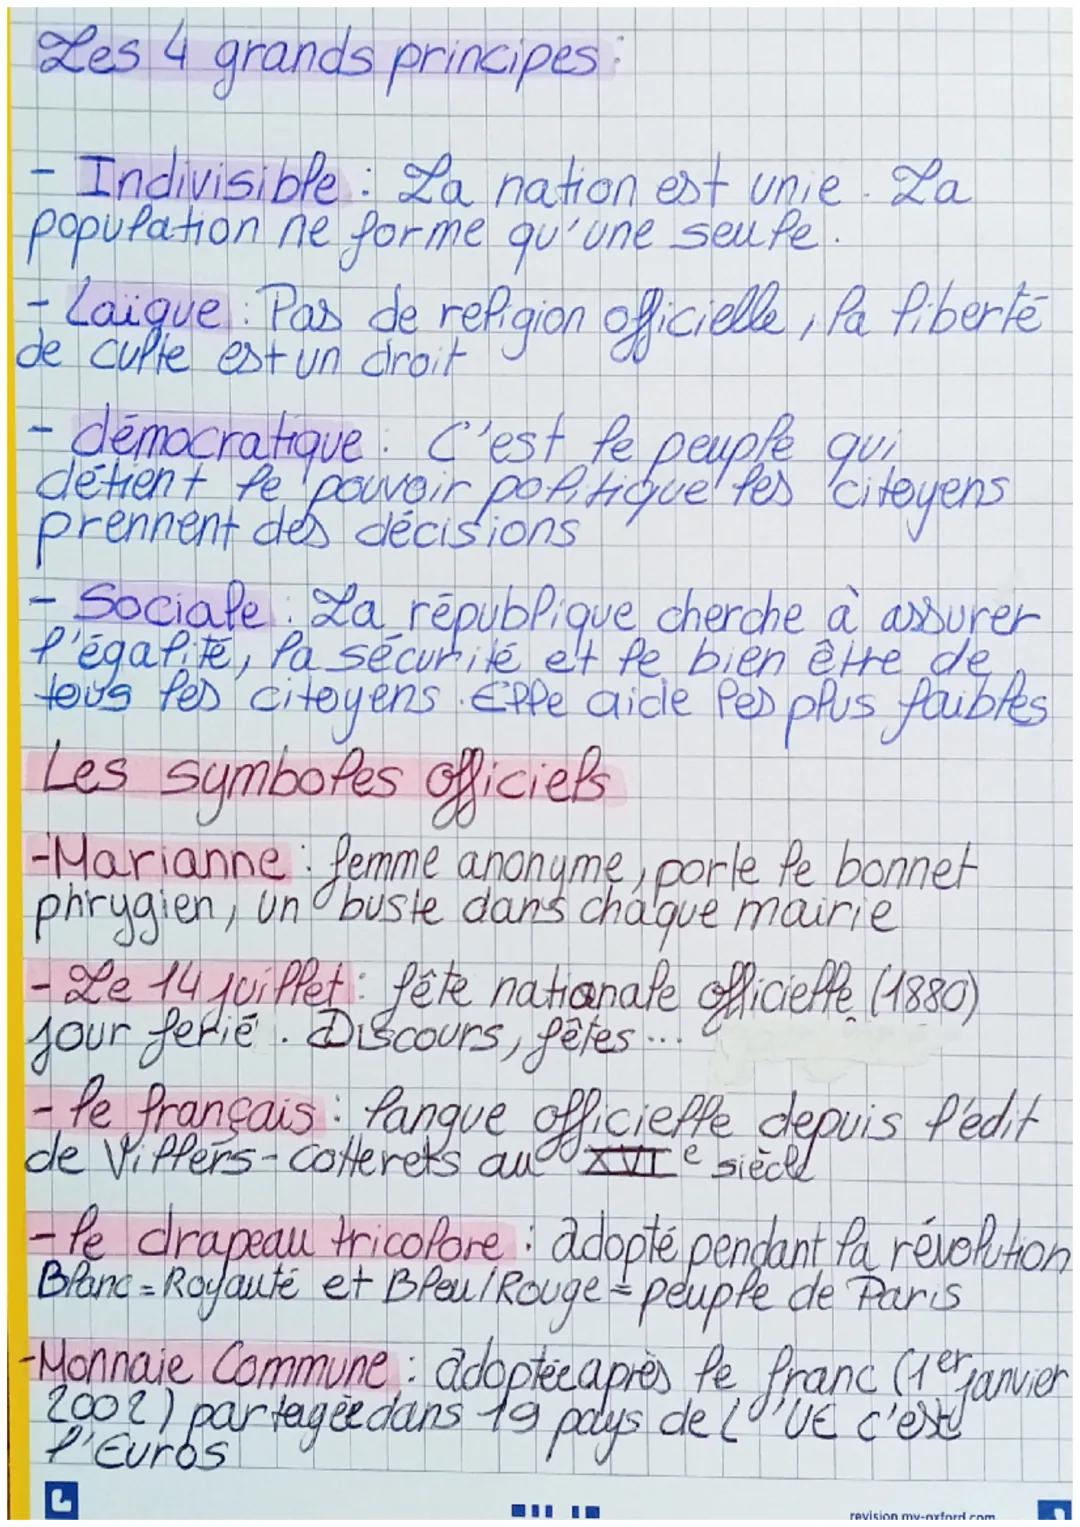 Les 4 grands principes :
- Indivisible : La nation est unie. La
population ne forme qu'une seule.
- Laïque : Pas de religion officielle, la liberté
de culte est un droit
- démocratique : C'est le peuple qui
détient le pouvoir politique les citoyens
prennent des décisions
- Sociale : La république cherche à assurer
l'égalité, la sécurité et le bien être de
tous les citoyens. Elle aide les plus faibles
Les symboles officiels
- Marianne : femme anonyme, porte le bonnet
phrygien, un buste dans chaque mairie
- Le 14 juillet : fête nationale officielle (1880)
jour ferié. Discours, fêtes...
- le français : langue officielle depuis l'édit
de Villers-Cotterets au XVIe siècle
- le drapeau tricolore : adopté pendant la révolution
Blanc = Royauté et Bleu/Rouge = peuple de Paris
- Monnaie Commune : adoptée après le franc (1er janvier
2002) partagée dans 19 pays de L'UE c'est
l'Euros
revision.my-oxford.com